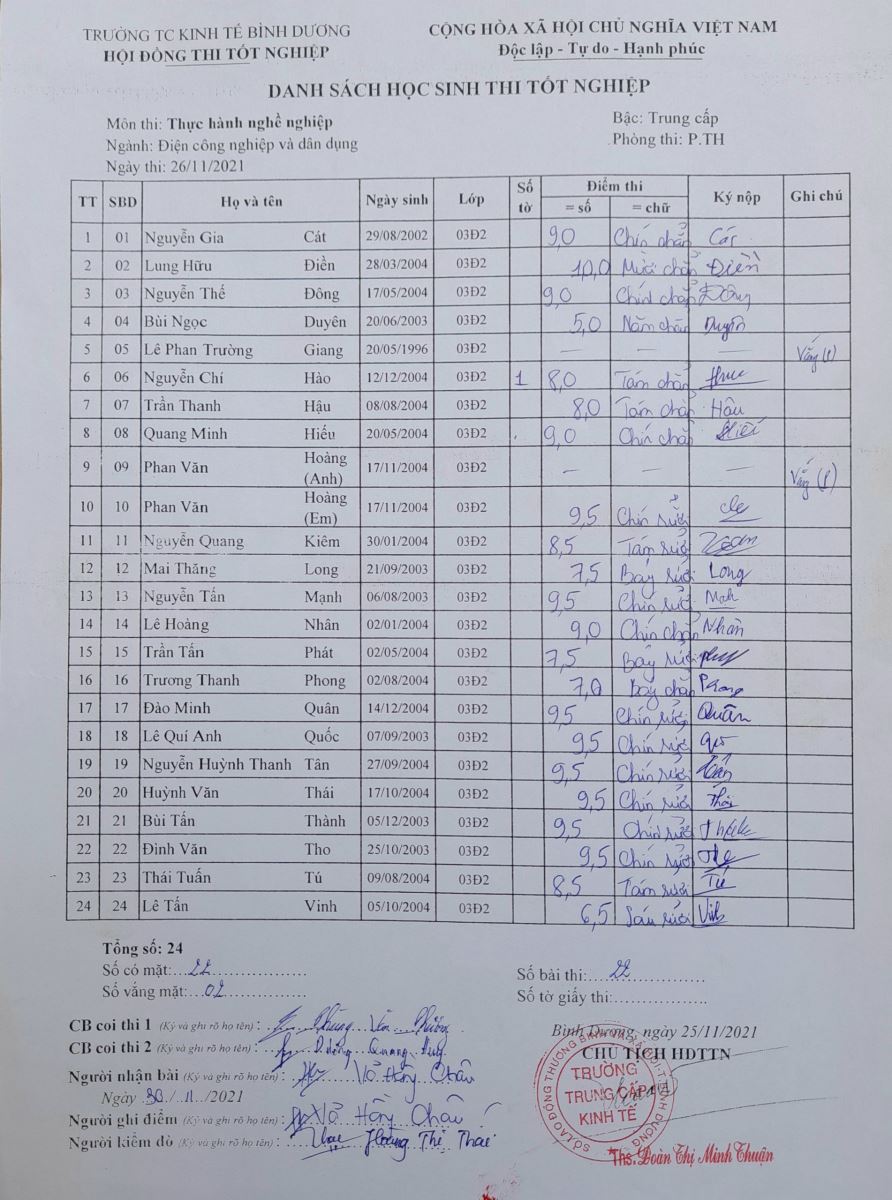 TRƯỜNG TC KINH TẾ BÌNH DƯƠNG
HỘI ĐỒNG THI TỐT NGHIỆP
CỘNG HÒA XÃ HỘI CHỦ NGHĨA VIỆT NAM
Độc lập - Tự do - Hạnh phúc
DANH SÁCH HỌC SINH THI TỐT NGHIỆP
Môn thi: Thực hành nghề nghiệp
Ngành: Điện công nghiệp và dân dụng
Ngày thi: 26/11/2021
Bậc: Trung cấp
Phòng thi: P.TH
TT SBD Họ và tên Ngày sinh Lớp Số tờ Điểm thi = số = chữ Ký nộp Ghi chú
1 01 Nguyễn Gia Cát 29/08/2002 03Đ2 9,0 Chín chẵn Cát
2 02 Lung Hữu Điền 28/03/2004 03Đ2 10,0 Mười chẵn Điền
3 03 Nguyễn Thế Đông 17/05/2004 03Đ2 9,0 Chín chẵn Đông
4 04 Bùi Ngọc Duyên 20/06/2003 03Đ2 5,0 Năm chẵn Duyên
5 05 Lê Phan Trường Giang 20/05/1996 03Đ2 — — — Vắng (P)
6 06 Nguyễn Chí Hào 12/12/2004 03Đ2 1 8,0 Tám chẵn
7 07 Trần Thanh Hậu 08/08/2004 03Đ2 8,0 Tám chẵn Hậu
8 08 Quang Minh Hiếu 20/05/2004 03Đ2 9,0 Chín chẵn Hiếu
9 09 Phan Văn Hoàng (Anh) 17/11/2004 03Đ2 — — — Vắng (P)
10 10 Phan Văn Hoàng (Em) 17/11/2004 03Đ2 9,5 Chín rưỡi
11 11 Nguyễn Quang Kiêm 30/01/2004 03Đ2 8,5 Tám rưỡi
12 12 Mai Thăng Long 21/09/2003 03Đ2 7,5 Bảy rưỡi Long
13 13 Nguyễn Tấn Mạnh 06/08/2003 03Đ2 9,5 Chín rưỡi
14 14 Lê Hoàng Nhân 02/01/2004 03Đ2 9,0 Chín chẵn Nhân
15 15 Trần Tấn Phát 02/05/2004 03Đ2 7,5 Bảy rưỡi
16 16 Trương Thanh Phong 02/08/2004 03Đ2 7,0 Bảy chẵn Phong
17 17 Đào Minh Quân 14/12/2004 03Đ2 9,5 Chín rưỡi Quân
18 18 Lê Quí Anh Quốc 07/09/2003 03Đ2 9,5 Chín rưỡi
19 19 Nguyễn Huỳnh Thanh Tân 27/09/2004 03Đ2 9,5 Chín rưỡi Tân
20 20 Huỳnh Văn Thái 17/10/2004 03Đ2 9,5 Chín rưỡi Thái
21 21 Bùi Tấn Thành 05/12/2003 03Đ2 9,5 Chín rưỡi
22 22 Đinh Văn Tho 25/10/2003 03Đ2 9,5 Chín rưỡi
23 23 Thái Tuấn Tú 09/08/2004 03Đ2 8,5 Tám rưỡi Tú
24 24 Lê Tấn Vinh 05/10/2004 03Đ2 6,5 Sáu rưỡi Vinh
Tổng số: 24
Số có mặt: 22
Số vắng mặt: 02
Số bài thi: 22
Số tờ giấy thi:
CB coi thi 1 (Ký và ghi rõ họ tên): Phùng Văn
CB coi thi 2 (Ký và ghi rõ họ tên): Dương Quang
Người nhận bài (Ký và ghi rõ họ tên): Võ Hồng Châu
Ngày 30/11/2021
Người ghi điểm (Ký và ghi rõ họ tên): Võ Hồng Châu
Người kiểm dò (Ký và ghi rõ họ tên): Hoàng Thị Thai
Bình Dương, ngày 25/11/2021
CHỦ TỊCH HĐTTN
TRƯỜNG
TRUNG CẤP
KINH TẾ
Ths. Đoàn Thị Minh Thuận